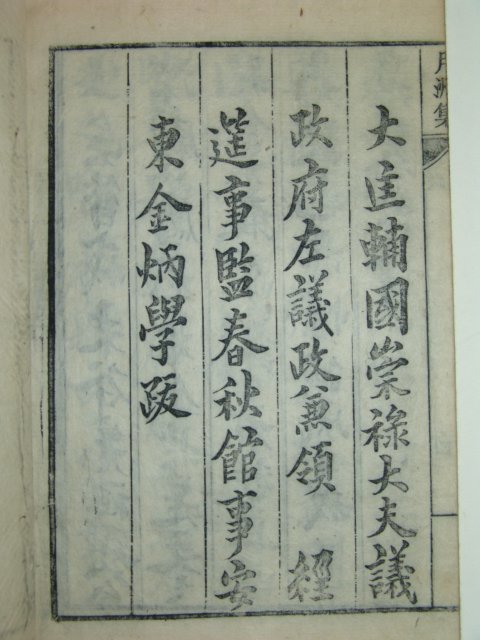 大匡輔國崇祿大夫議
政府左議政兼領 經
筵事監春秋館事安
東金炳學跋